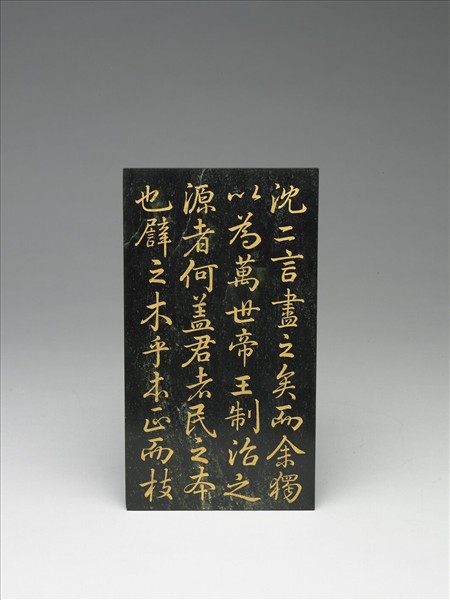 沈二言盡之矣而余獨
以為萬世帝王制治之
源者何盖君者民之本
也辟之木乎本正而枝